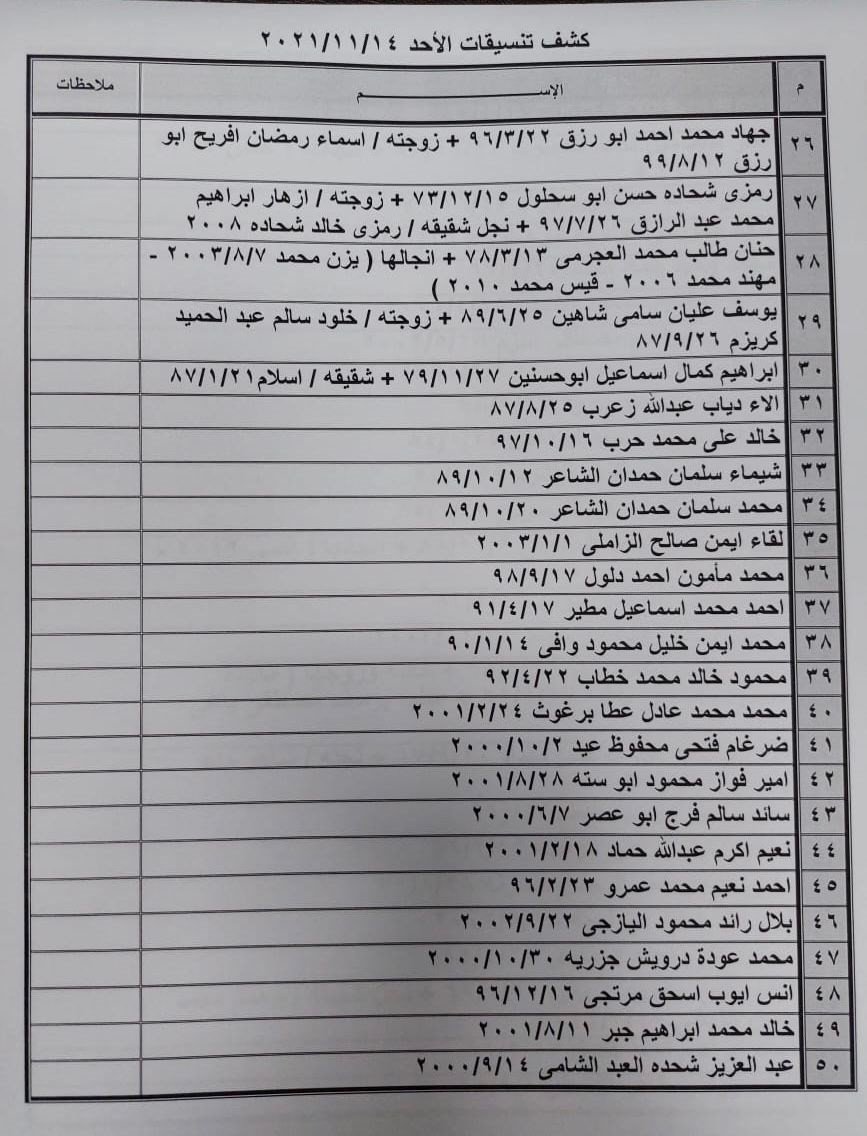 كشف تنسيقات الأحد ٢٠٢١/١١/١٤
م الإســـــــــــم ملاحظات
٢٦ جهاد محمد احمد ابو رزق ٩٦/٣/٢٢ + زوجته / اسماء رمضان افريح ابو
رزق ٩٩/٨/١٢
٢٧ رمزى شحاده حسن ابو سحلول ٧٣/١٢/١٥ + زوجته / ازهار ابراهيم
محمد عبد الرازق ٩٧/٧/٢٦ + نجل شقيقه / رمزى خالد شحاده ٢٠٠٨
٢٨ حنان طالب محمد العجرمى ٧٨/٣/١٣ + انجالها ( يزن محمد ٢٠٠٣/٨/٧ -
مهند محمد ٢٠٠٦ - قيس محمد ٢٠١٠ )
٢٩ يوسف عليان سامى شاهين ٨٩/٦/٢٥ + زوجته / خلود سالم عبد الحميد
كريزم ٨٧/٩/٢٦
٣٠ ابراهيم كمال اسماعيل ابوحسنين ٧٩/١١/٢٧ + شقيقه / اسلام ٨٧/١/٢١
٣١ الاء دياب عبدالله زعرب ٨٧/٨/٢٥
٣٢ خالد على محمد حرب ٩٧/١٠/١٦
٣٣ شيماء سلمان حمدان الشاعر ٨٩/١٠/١٢
٣٤ محمد سلمان حمدان الشاعر ٨٩/١٠/٢٠
٣٥ لقاء ايمن صالح الزاملى ٢٠٠٣/١/١
٣٦ محمد مأمون احمد دلول ٩٨/٩/١٧
٣٧ احمد محمد اسماعيل مطير ٩١/٤/١٧
٣٨ محمد ايمن خليل محمود وافى ٩٠/١/١٤
٣٩ محمود خالد محمد خطاب ٩٢/٤/٢٢
٤٠ محمد محمد عادل عطا برغوث ٢٠٠١/٢/٢٤
٤١ ضرغام فتحى محفوظ عيد ٢٠٠٠/١٠/٢
٤٢ امير فواز محمود ابو سته ٢٠٠١/٨/٢٨
٤٣ سائد سالم فرج ابو عصر ٢٠٠٠/٦/٧
٤٤ نعيم اكرم عبدالله حماد ٢٠٠١/٢/١٨
٤٥ احمد نعيم محمد عمرو ٩٦/٢/٢٣
٤٦ بلال رائد محمود اليازجى ٢٠٠٢/٩/٢٢
٤٧ محمد عودة درويش جزريه ٢٠٠٠/١٠/٣٠
٤٨ انس ايوب اسحق مرتجى ٩٦/١٢/١٦
٤٩ خالد محمد ابراهيم جبر ٢٠٠١/٨/١١
٥٠ عبد العزيز شحده العبد الشامى ٢٠٠٠/٩/١٤